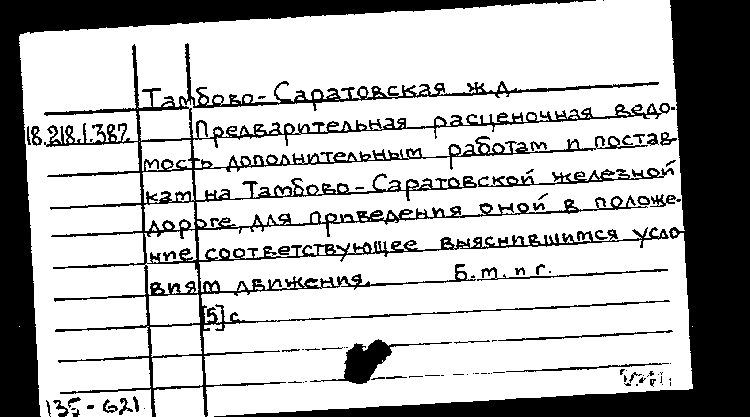 Тамбово-Саратовская ж.д.
18.218.1.387. Предварительная расценочная ведо-
мость дополнительным работам и постав-
кам на Тамбово-Саратовской железной
дороге, для приведения оной в положе-
ние соответствующее выяснившимся усло-
виям движения. Б.м. и г.
[5] с.
135-621